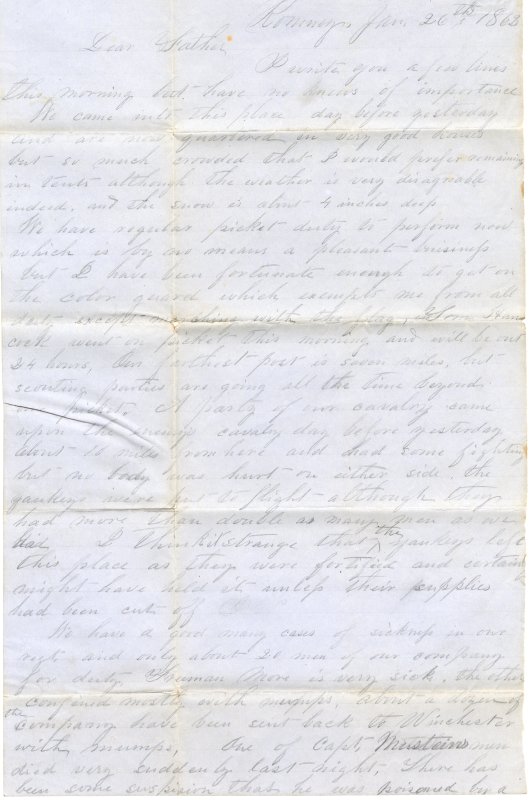 Romney Jan. 26th 1862
Dear Father
I write you a few lines
this morning but have no news of importance
We came into this place day before yesterday
and are now quartered in very good houses
but so much crowded that I would prefer remaining
in tents although the weather is very disagreable
indeed, and the snow is about 4 inches deep
We have regular picket duty to perform now
which is by no means a pleasant business
but I have been fortunate enough to get on
the color guard which exempts me from all
duty except marching with the flag, Tom Han
cock went on picket this morning and will be out
24 hours, Our furthost post is seven miles, but
scouting parties are going all the time beyond
our picket. A party of our cavalry came
upon the enemys cavalry day before yesterday
about 20 miles from here and had some fighting
but no body was hurt on either side, the
yankeys were put to flight although they
had more than double as many men as we
had I think it strange that the yankeys left
this place as they were fortified and certainly
might have held it unless their supplies
had been cut off
We have a good many cases of sickness in our
regt. and only about 20 men of our company
for duty. Freeman More is very sick, the others
confined mostly with mumps, about a dozen of
the company have been sent back to Winchester
with mumps, One of Capt, Mustains men
died very suddenly last night, There has
been some suspision that he was poisoned by a